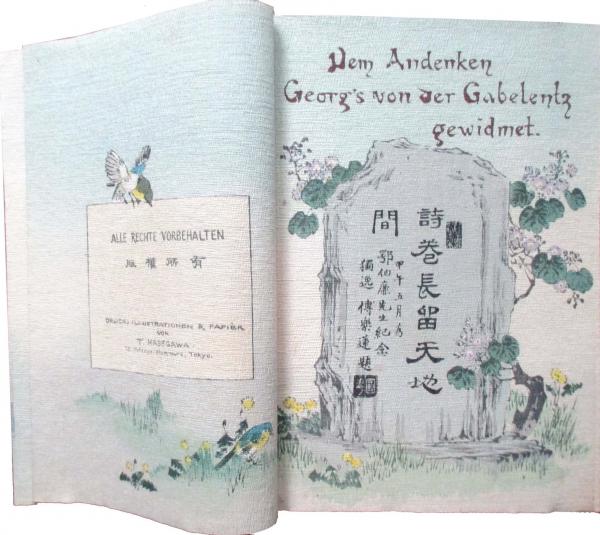 ALLE RECHTE VORBEHALTEN
版權所有
DRUCK, ILLUSTRATIONEN & PAPIER
VON
T. HASEGAWA
Tokyo.
Dem Andenken
Georg's von der Gabelentz
gewidmet.
詩卷長留天地
間
甲午五月為
鄂伯廉先生紀念
獨逸 傅樂蓮題